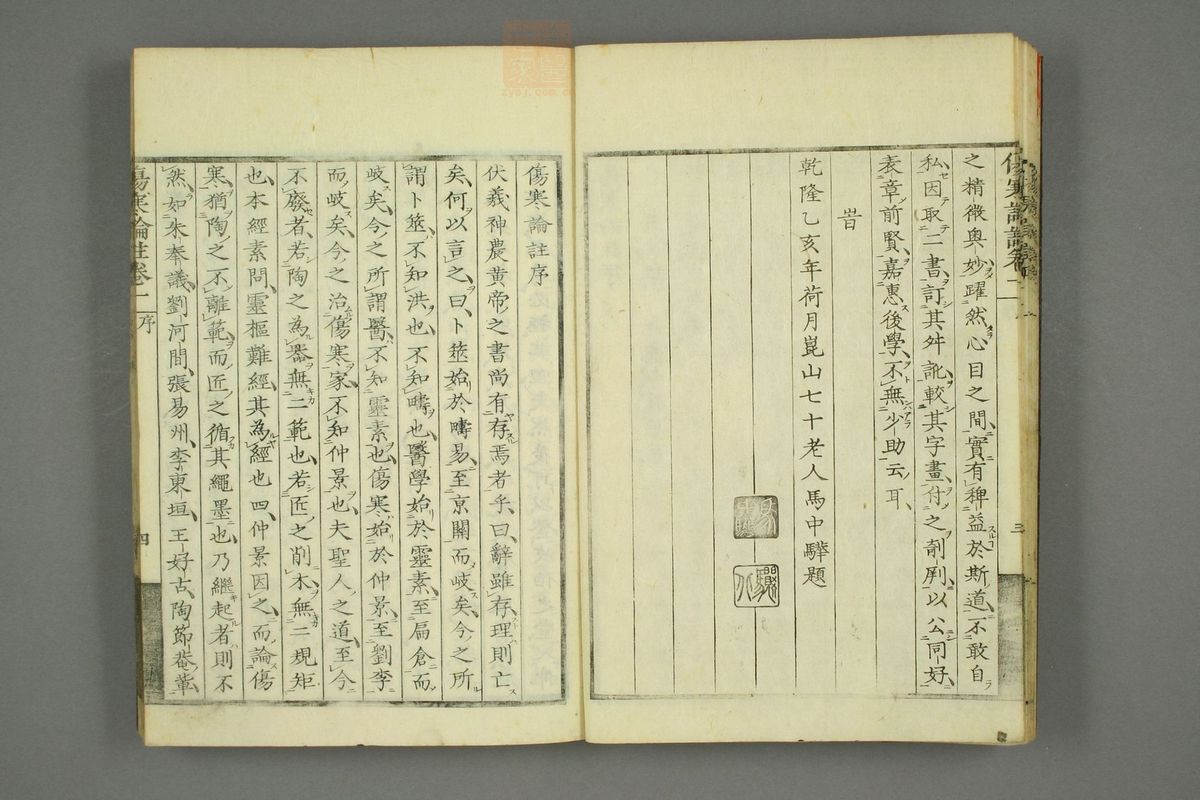 之精微奥妙躍然心目之間實有稗益於斯道不敢自
私因取二書訂其舛訛較其字畫付之剞劂以公同好
表章前賢嘉惠後學不無少助云耳
旹
乾隆乙亥年荷月崑山七十老人馬中驊題
傷寒論註序
伏羲神農黄帝之書尚有存焉者乎曰辭雖存理則亡
矣何以言之曰卜筮始於疇易至京關而岐矣今之所
謂卜筮不知洪也不知疇也醫學始於靈素至扁倉而
岐矣今之所謂醫不知靈素也傷寒始於仲景至劉李
而岐矣今之治傷寒家不知仲景也夫聖人之道至今
不廢者若陶之為器無二範也若匠之削木無二規矩
也本經素問靈樞難經其為經也四仲景因之而論傷
寒猶陶之不離範而匠之循其繩墨也乃繼起者則不
然如朱奉議劉河間張易州李東垣王好古陶節菴輩
傷寒論註卷一 序
四
zysj.com.cn